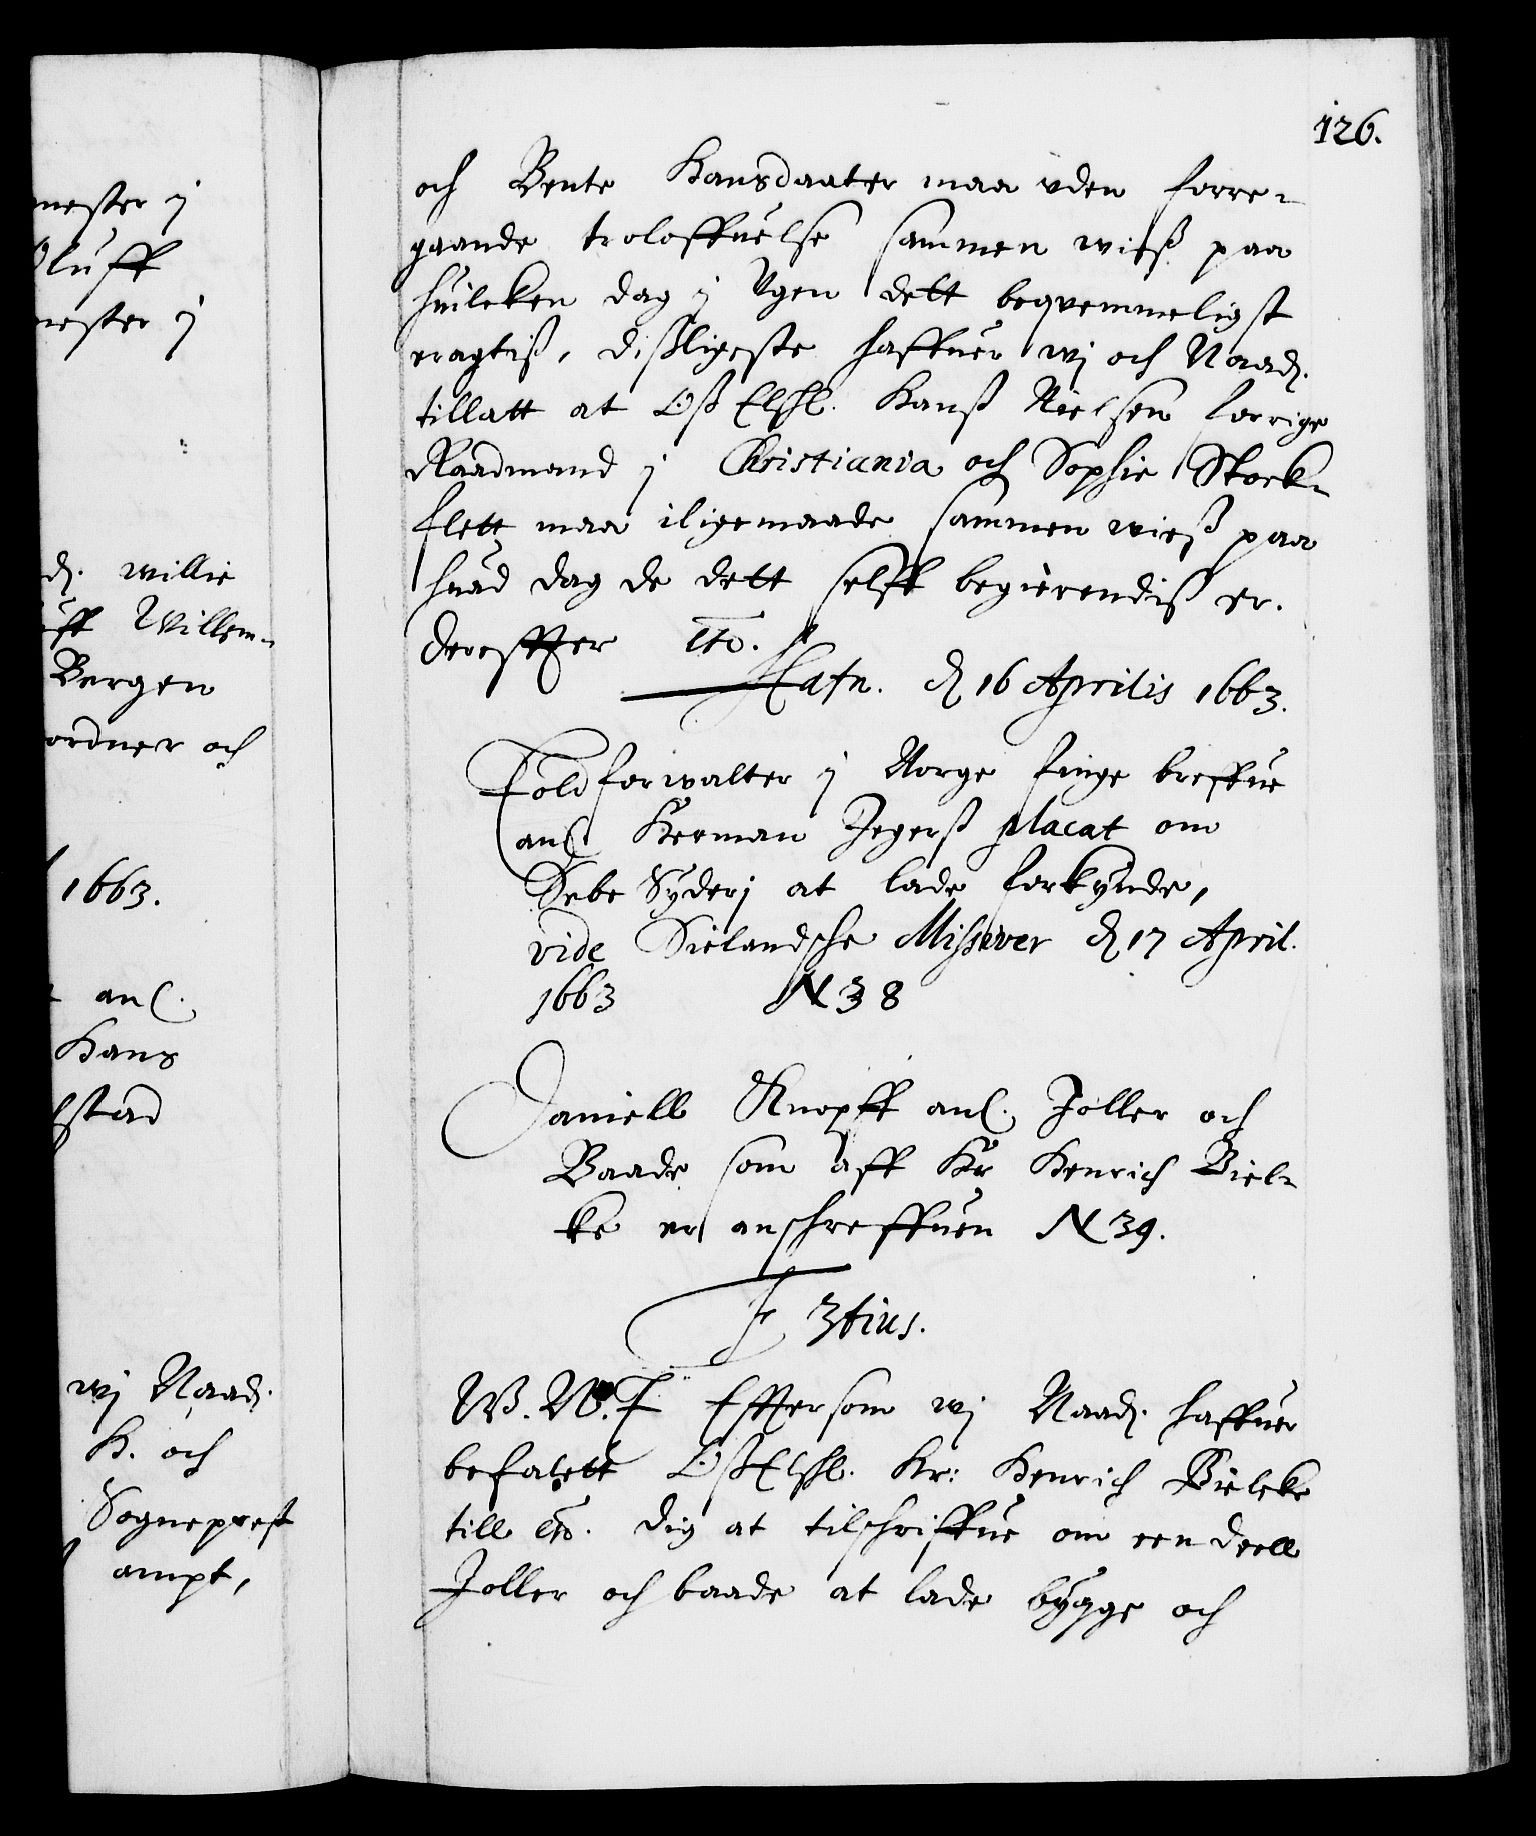 126.
och Bente Hansdaater maa uden forre-
gaande troloffuelse sammen wieß paa
huilcken dag j Ugen dett beqvemmeligst
eragtiß, dißligeste haffuer wj och Naadj.
tillatt at Oß Elshl. Hanß Nielsen forrige
Raadmand j Christiania och Sophie Stock-
flett maa iligemaade sammen wieß paa
huad dag de dett selff begierendiß er.
derefter etc.
Hafn. d 16 Aprilis 1663.
Toldforvalter j Norge finge breffue
anl Herman Jegerß placat om
Sebe Syderj at lade forkynde,
vide Sielandsche Missiver d 17 April.
1663 N 38
Daniell Knopff anl. Joller och
Baade som aff Hr Henrich Biel-
ke er anschreffuen N 39.
F 3tius.
W. W. T Eftersom wj Naadj. haffuer
befalett Oß Elshl. Hr: Henrich Bielcke
till etc. dig at tilschriffue om een deell
Joller och baade at lade bygge och
mester j
Oluff
mester j
dj. willie
uff Willem-
Bergen
ordner och
1663.
anl.
Hans
stad
wj Naadj.
H. och
Sogneprest
ampt,